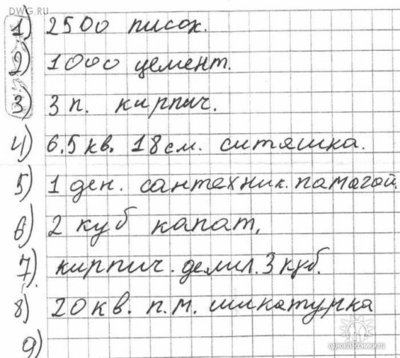 DWG.RU
1) 2500 писок.
2) 1000 цемент.
3) 3 п. кирпич.
4) 6.5 кв. 18 см. ситяшка.
5) 1 ден. сантехник. памагой
6) 2 куб капат,
7) кирпич. делил. 3 куб.
8) 20 кв. п.м. шикатурка
9)